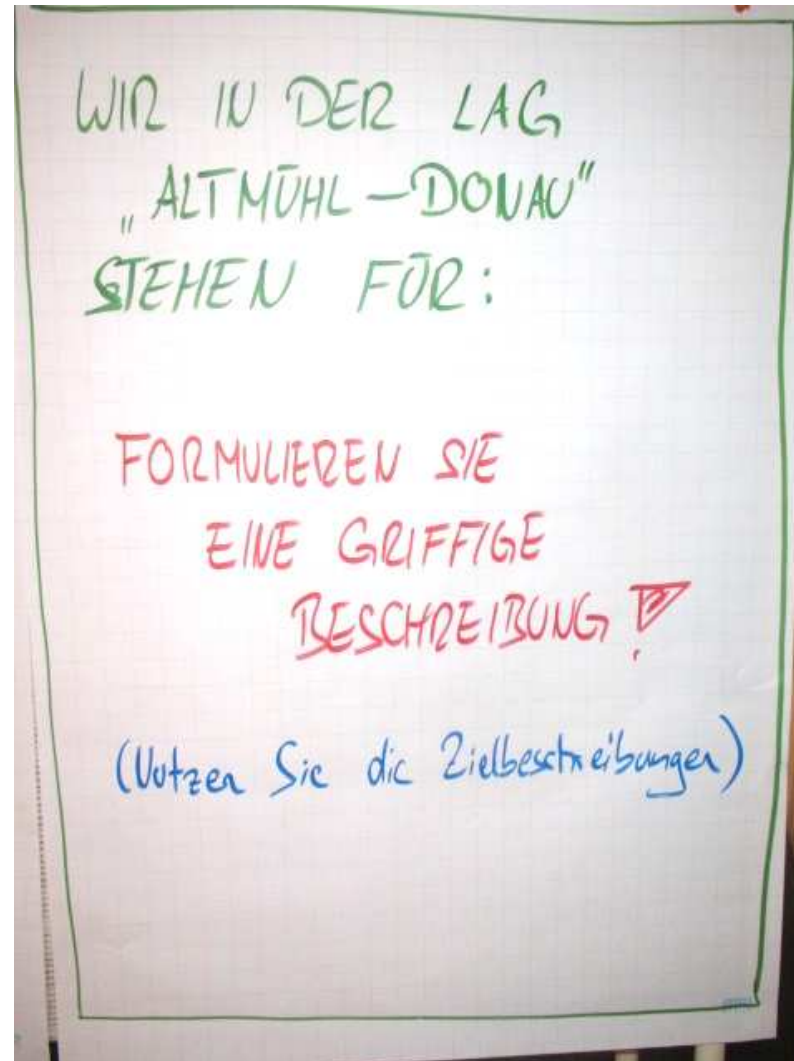 WIR IN DER LAG
„ALTMÜHL – DONAU"
STEHEN FÜR:
FORMULIEREN SIE
EINE GRIFFIGE
BESCHREIBUNG!
(Nutzen Sie die Zielbeschreibungen)